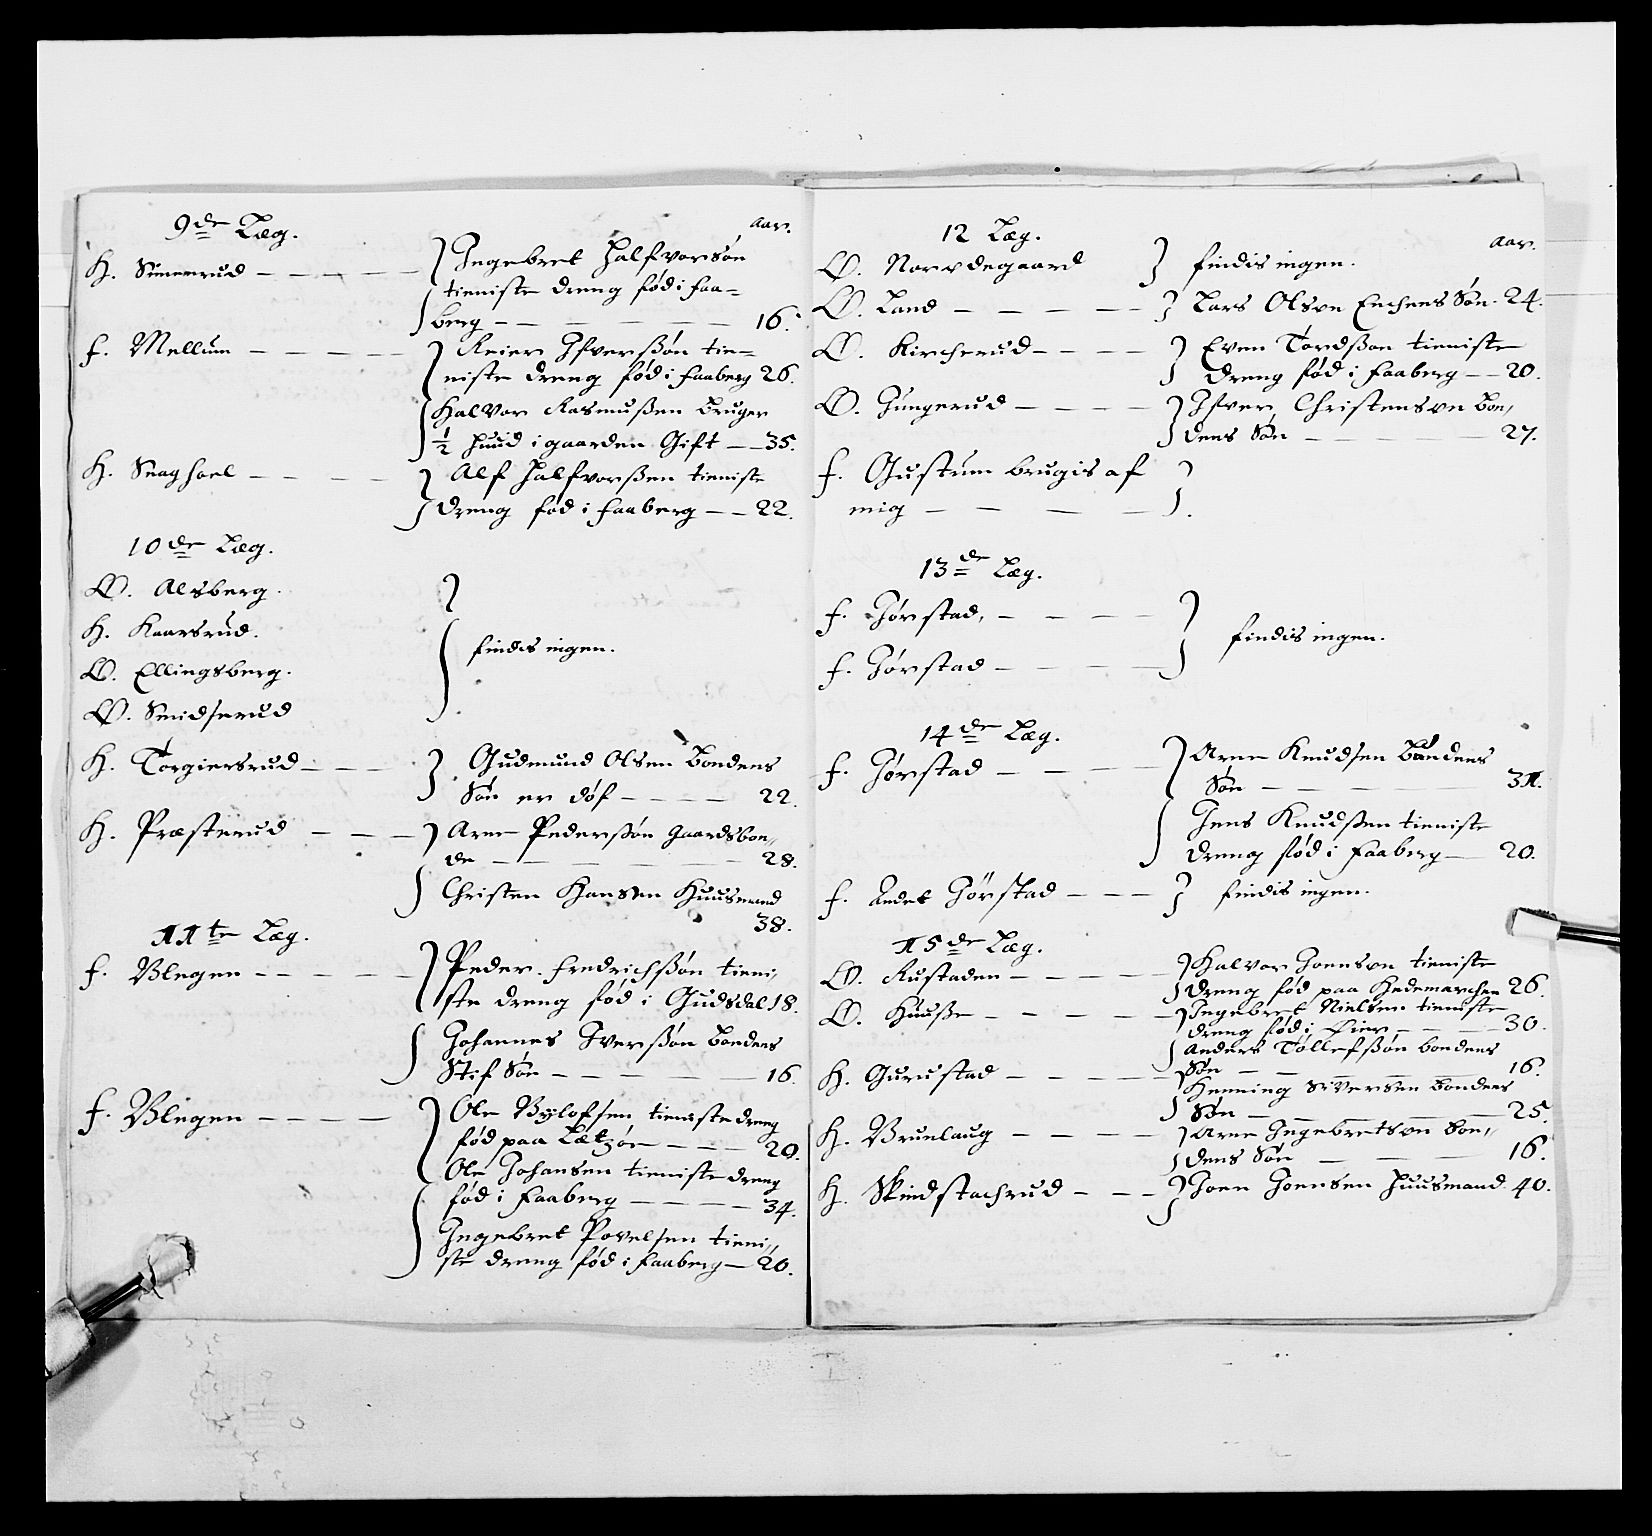 9de Læg.
aar.
H. Simenrud
Ingebret Halfvorsøn
tieniste dreng fød i Faa=
berg 16.
f. Mellum
Reier Ifverßøn tie=
niste dreng fød i Faaberg 26.
Halvor Rasmußen bruger
½ huud i gaarden Gift 35.
H.
Alf Halfvorßen tieniste
dreng fød i Faaberg 22.
10de Læg.
Ø. Alsberg.
H. Kaarsrud.
Ø. Ellingsberg.
Ø. Smidserud
findis ingen.
H. Torgiersrud
Gudmund Olsen bondens
Søn er døf 22.
H. Præsterud
Arne Pederßøn gaardsbon,,
de 28.
Christen Hansen Huusmand
38.
11te Læg.
f. Blegen
Peder Fredrichßøn tieni,
ste dreng fød i Gudsdal 18.
Johannes Iverßøn bondens
Stif Søn 16.
f. Blegen
Ole tieniste dreng
fød paa 20.
Ole Johansen tieniste dreng
fød i Faaberg 34.
Ingebret Povelsen tieni,,
ste dreng fød i Faaberg 20.
12 Læg.
aar.
Ø. Nordegaard
findis ingen.
Ø. Land
Lars Olsøn Enchens Søn. 24.
Ø. Kircherud
Even Tordßøn tieniste
dreng fød i Faaberg 20.
Ø. Jungerud
Ifver Christensøn bon,,
dens Søn 27.
f. Gustum brugis af
mig
13de Læg.
f. Jørstad,
f. Jørstad
findis ingen.
14de Læg.
f. Jørstad
Arne Knudsen bondens
Søn 31.
Jens Knudßen tieniste
dreng fød i Faaberg 20.
f. Andet Jørstad
findis ingen.
15de Læg.
Ø. Rustaden
Halvor Joensøn tieniste
dreng fød paa Hedemarchen 26.
Ø. Huuße
Ingebret Nielsen tieniste
dreng fød i 30.
Anders Tollefßøn bondens
Søn 16.
H. Gurustad
Henning Siversen bondens
Søn 25.
H. Bruelaug
Arne Ingebretsøn bon,,
dens Søn 16.
H. Skindstachrud
Joen Joensen Huusmand. 40.